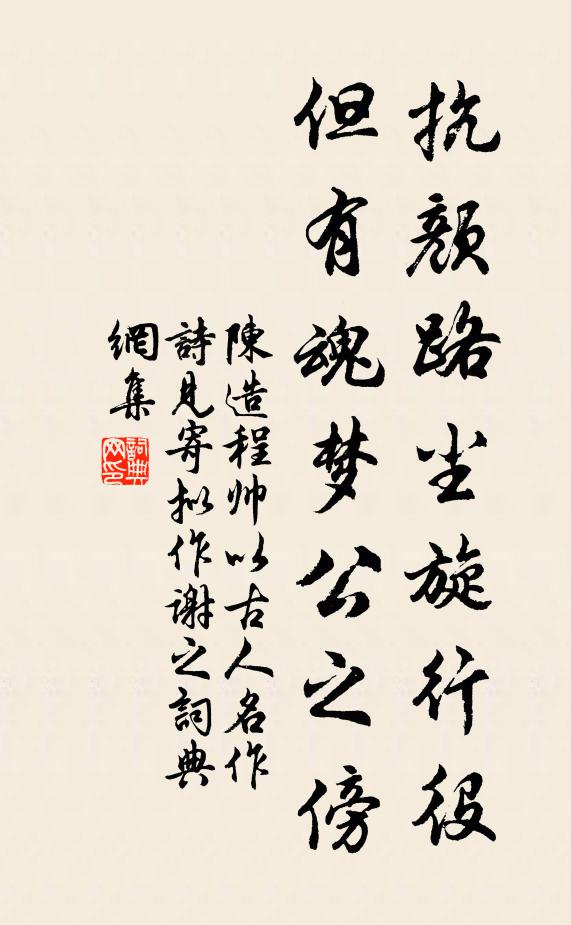 抗顔路尘旋行役
但有魂梦公之傍
陳造程帅以古人名作
詩見寄拟作谢之詞典
網集
詞典网印